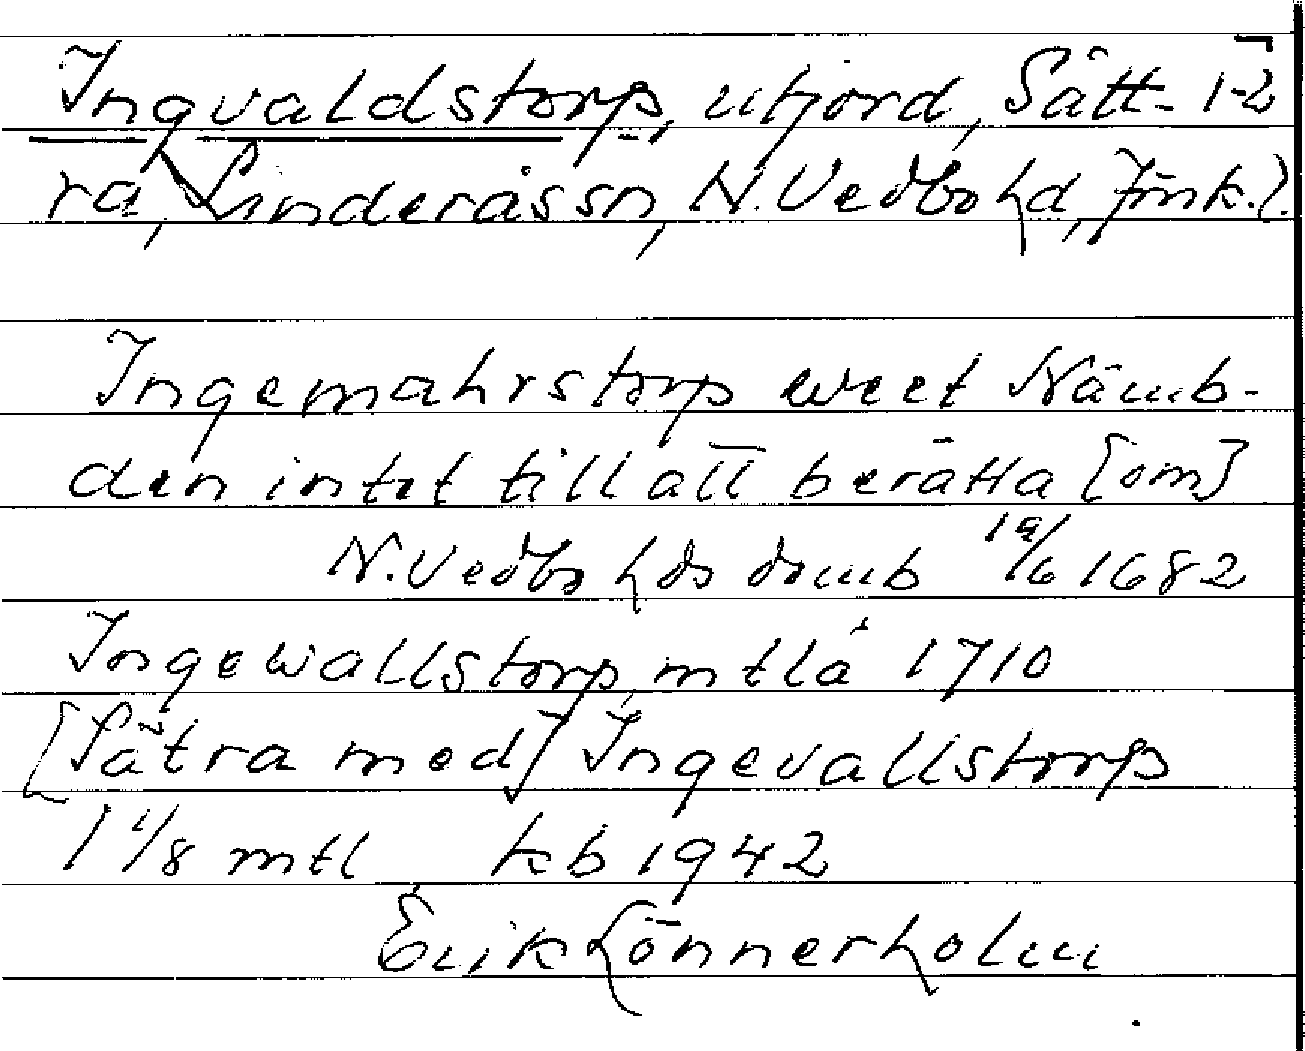 Ingvaldstorp, utjord, Sätt- 1-2
ra, Linderås sn, N. Vedbo hd, Jönk. l.
Ingemahrstorp weet Nämb-
den intet till att berätta [om]
N. Vedbo hds domb 19/6 1682
Ingewallstorp, mtlä 1710
[Sätra med] Ingevallstorp
1 1/8 mtl kb 1942
Erik Lönnerholm